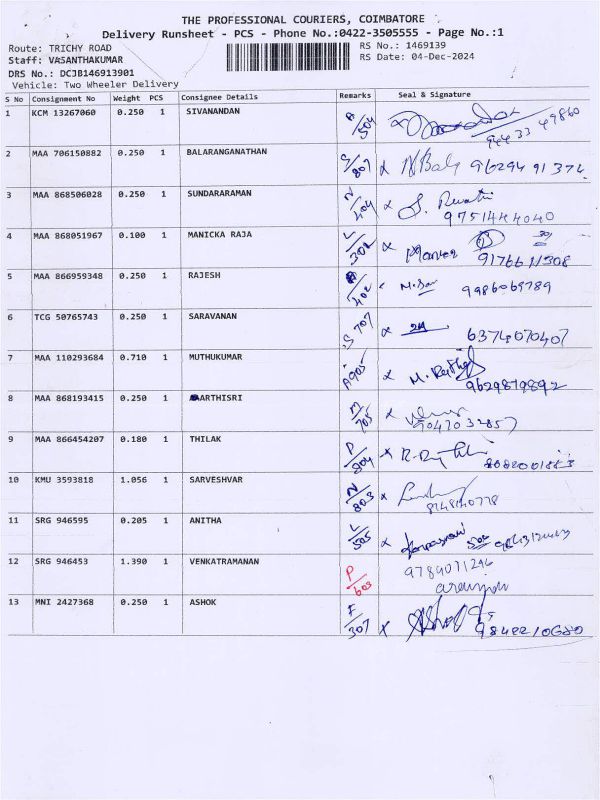 THE PROFESSIONAL COURIERS, COIMBATORE
Delivery Runsheet - PCS - Phone No.:0422-3505555 - Page No.:1
Route: TRICHY ROAD RS No.: 1469139
Staff: VASANTHAKUMAR RS Date: 04-Dec-2024
DRS No.: DCJB146913901
Vehicle: Two Wheeler Delivery
S No Consignment No Weight PCS Consignee Details Remarks Seal & Signature
1 KCM 13267060 0.250 1 SIVANANDAN A/504 94433 49860
2 MAA 706150882 0.250 1 BALARANGANATHAN S/807 x N Baly 96294 91374
3 MAA 868506028 0.250 1 SUNDARARAMAN N/404 x S. Revathi 9751444040
4 MAA 868051967 0.100 1 MANICKA RAJA L/302 x 9176611308
5 MAA 866959348 0.250 1 RAJESH 402 9986069789
6 TCG 50765743 0.250 1 SARAVANAN S 707 x 6374070407
7 MAA 110293684 0.710 1 MUTHUKUMAR A905 x 9629879892
8 MAA 868193415 0.250 1 AARTHISRI M/705 x
9 MAA 866454207 0.180 1 THILAK P/804 x
10 KMU 3593818 1.056 1 SARVESHVAR N/803 x 8248140778
11 SRG 946595 0.205 1 ANITHA L/505 x
12 SRG 946453 1.390 1 VENKATRAMANAN P/603 9789071246
13 MNI 2427368 0.250 1 ASHOK F/307 x Ashok 9842210680